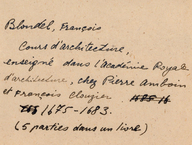 Blondel, François
Cours d'architecture,
enseigné dans l'académie Royale
d'architecture, chez Pierre Auboin
et François Clouzier
1675-1683.
(5 parties dans un livre)